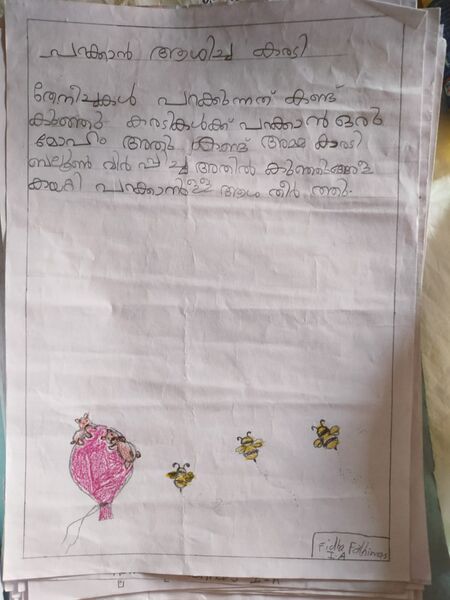 പറക്കാൻ ആശിച്ച കരടി
തേനീച്ചകൾ പറക്കുന്നത് കണ്ട്
കുഞ്ഞു കരടികൾക്ക് പറക്കാൻ ഒരു
മോഹം അതു കണ്ട് അമ്മ കരടി
ബലൂൺ വീർ പ്പിച്ച് അതിൽ കുഞ്ഞുങ്ങളെ
കയറ്റി പറക്കാനുള്ള ആശ തീർ ത്തു.
Fidha Fathima
I-A